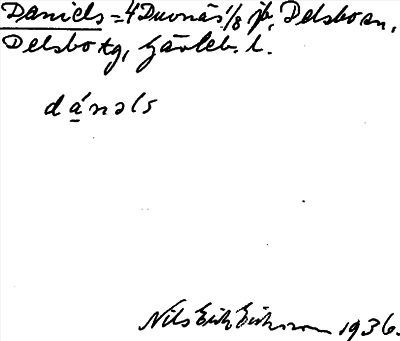 Daniels = 4 Duvnäs 1/8 jb, Delsbo sn,
Delsbo tg, Gävleb. l.
dánəls
Nils Erik Eriksson 1936.